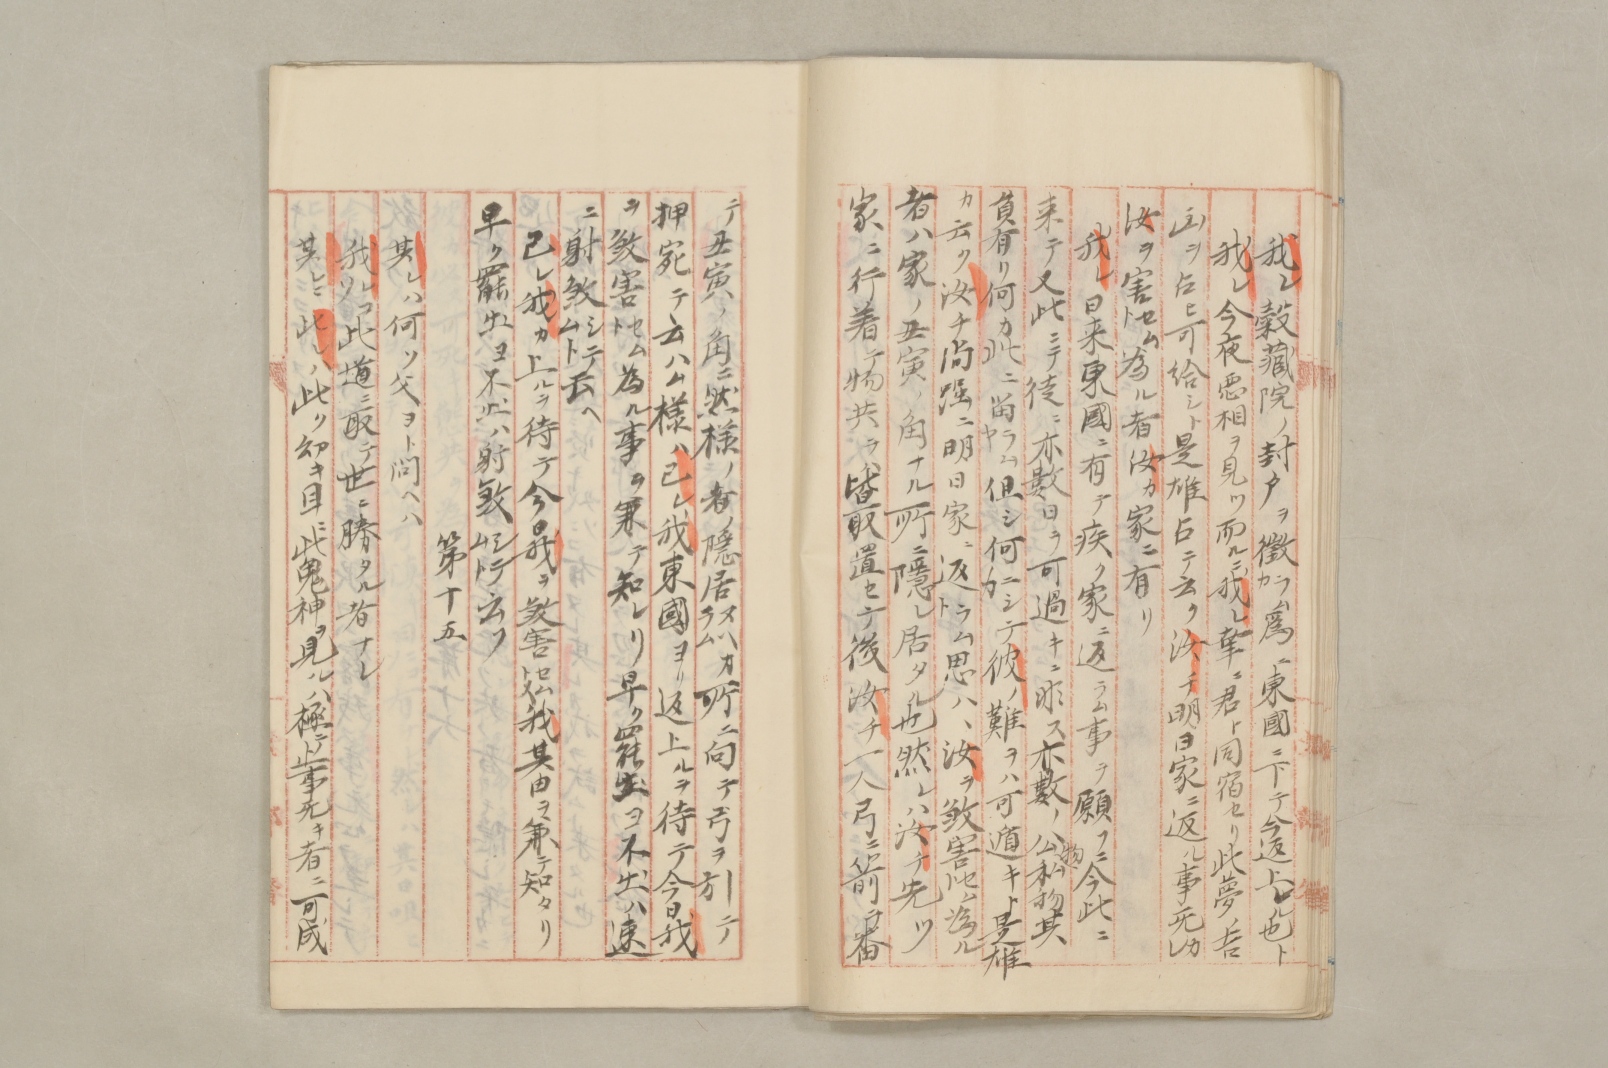 我レ穀藏院ノ封戸ヲ徴カラム爲ニ東國ニ下テ今返上ル也ト
我レ今夜悪相ヲ見ツ而ルニ我レ幸ニ君ト同宿セリ此夢ノ吉
凶ヲ占ヒ可給シト是雄占テ云ク汝チ明日家ニ返ル事无レカ
汝ヲ害セムト為ル者汝カ家ニ有リ
我レ日来東國ニ有テ疾ク家ニ返ラム事ヲ願フニ今此ニ
来テ又此ニテ徒ニ亦數日ヲ可過キニ非ス亦數ノ公物私物其
員有リ何カ此ニ留ラムヤ但シ何ニシテカ彼ノ難ヲハ可遁キト是雄
カ云ク汝チ尚強ニ明日家ニ返ラムト思ハヽ汝ヲ敦害セムト為ル
者ハ家ノ丑寅ノ角ナル所ニ隱レ居タル也然レハ汝チ先ツ
家ニ行着テ物共ヲハ皆取置セテ後汝チ一人弓ニ箭ヲ番
テ丑寅ノ角ニ然様ノ者ノ隱居ヌラムカ所ニ向テ弓ヲ引ニテ
押宛テ云ハム様ハ己レ我東國ヨリ返上ルヲ待テ今日我
ヲ敦害セムト為ル事ヲ兼テ知レリ早ク羅出ヨ不出ハ速
ニ射敦シテムト云ヘ
己レ我カ上ルヲ待テ今日我ヲ敦害セムト我其由ヲ兼テ知タリ
早ク罷出ヨ不出ハ射敦シテムト云フ
第十五
其レハ何ソ父ヨト問ヘハ
我レコソ此道ニ取テ世ニ勝タル者ナレ
其レニ此レハ此ク幻キ目ニ此鬼神ヲ見ルハ極テ止事无キ者ニ可成